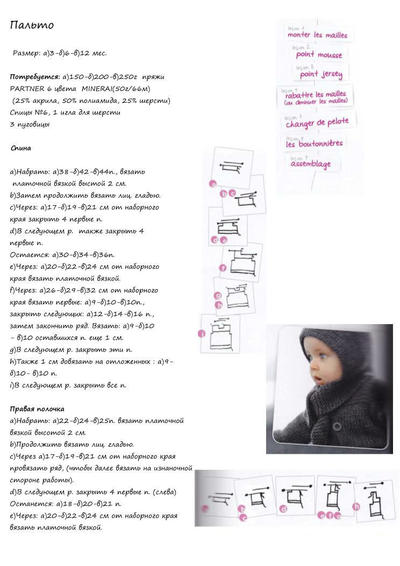 Пальто
Размер: а)3-б)6-в)12 мес.
Потребуется: а)150-в)200-в)250г пряжи
PARTNER 6 цвета MINERAI(50г/66м)
(25% акрила, 50% полиамида, 25% шерсти)
Спицы №6, 1 игла для шерсти
3 пуговицы
Спина
а)Набрать: а)38-б)42-в)44п., вязать
платочной вязкой высотой 2 см.
b)Затем продолжить вязать лиц. гладью.
c)Через: а)17-в)19-в)21 см от наборного
края закрыть 4 первые п.
d)В следующем р. также закрыть 4
первые п.
Остается: а)30-б)34-в)36п.
e)Через: а)20-в)22-в)24 см от наборного
края вязать платочной вязкой.
f)Через: а)26-в)29-в)32 см от наборного
края вязать первые: а)9-в)10-в)10п.,
закрыть следующих: а)12-б)14-в)16 п.,
затем закончить ряд. Вязать: а)9-в)10
- в)10 оставшихся п. еще 1 см.
g)В следующем р. закрыть эти п.
h)Также 1 см довязать на отложенных : а)9-
б)10- в)10 п.
i)В следующем р. закрыть все п.
Правая полочка
а)Набрать: а)22-б)24-в)25п. вязать платочной
вязкой высотой 2 см.
b)Продолжить вязать лиц. гладью.
c)Через а)17-в)19-в)21 см от наборного края
провязать ряд, (чтобы далее вязать на изнаночной
стороне работы).
d)В следующем р. закрыть 4 первые п. (слева)
Останется: а)18-б)20-в)21 п.
e)Через: а)20-в)22-в)24 см от наборного края
вязать платочной вязкой.
monter les mailles
point mousse
point jersey
rabattre les mailles
(ou diminuer les mailles)
changer de pelote
les boutonnières
assemblage